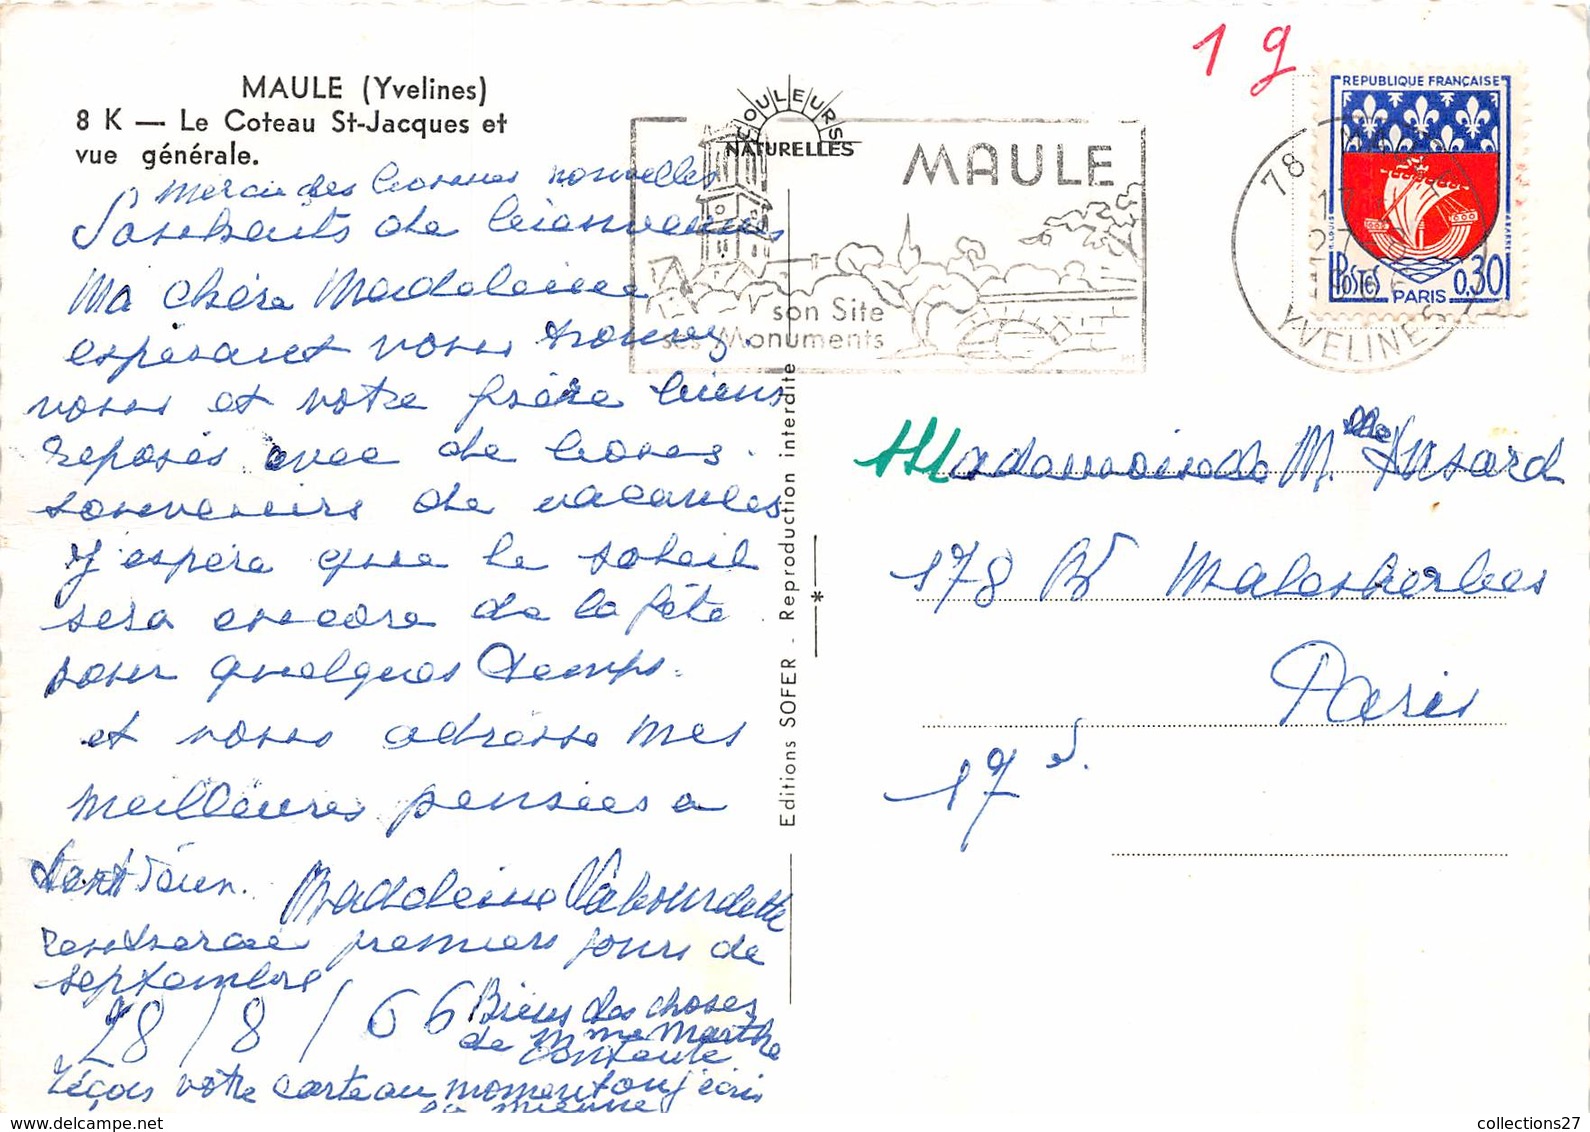 MAULE (Yvelines)
8 K — Le Coteau St-Jacques et
vue générale.
Merci des bonnes nouvelles
Souhaits de bienvenus
Ma chère Madeleine
espérant vous trouver
vous et votre frère biens
reposés avec de bons
souvenirs de vacances
J'espère que le soleil
sera encore de la fête
pour quelques temps.
et vous adresse mes
meilleures pensées a
tantôt
Madeleine Labourdette
rentrerai premiers jours de
septembre
28/8/66
Biens des choses
de Mme Marthe
contente
reçois votre carte au moment ou j'écris
la mienne
COULEURS
NATURELLES
MAULE
son Site
ses Monuments
Editions SOFER - Reproduction interdite
*
1 g
REPUBLIQUE FRANÇAISE
POSTES
PARIS
0,30
78
YVELINES
Mademoiselle M. Ansard
178 Bd Malesherbes
Paris
17 e.
collections27